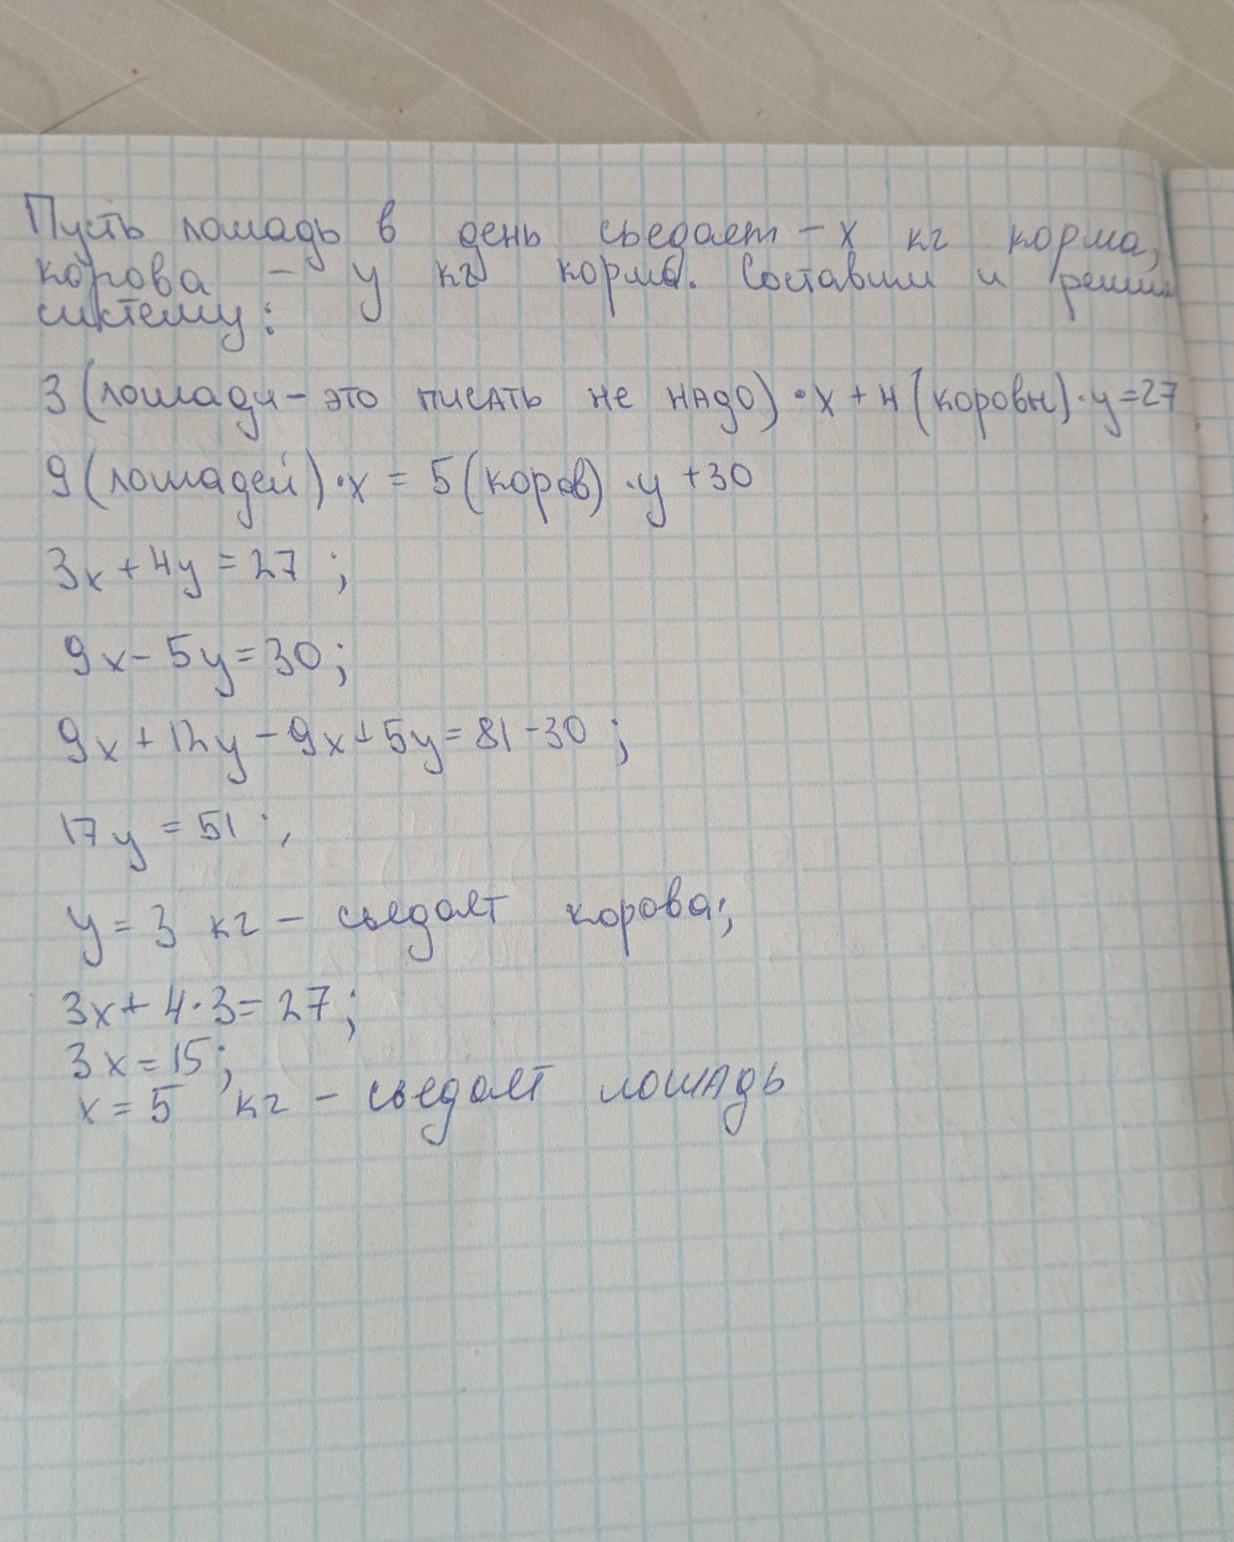 Пусть лошадь в день сьедает - х кг корма,
корова - у кг корма. Составим и решим
систему:
3 (лошади - это писать не надо) · х + 4 (коровы) · у = 27
9 (лошадей) · х = 5 (коров) · у + 30
3х + 4у = 27 ;
9х - 5у = 30 ;
9х + 12у - 9х + 5у = 81 - 30 ;
17у = 51 ;
у = 3 кг - сьедает корова ;
3х + 4 · 3 = 27 ;
3х = 15 ;
х = 5 кг - сьедает лошадь